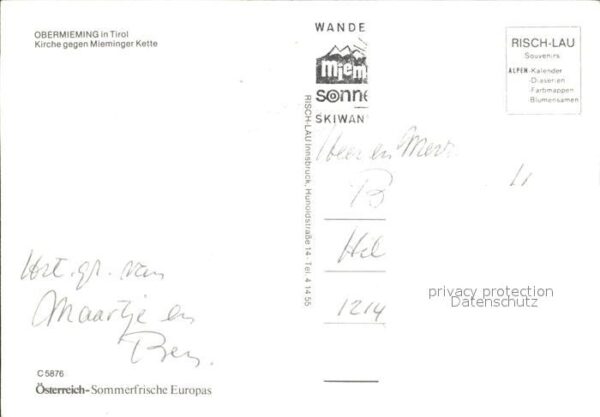 OBERMIEMING in Tirol
Kirche gegen Mieminger Kette
WANDE
miem
sonne
SKIWAN
RISCH-LAU
Souvenirs
ALPEN-Kalender
-Diaserien
-Farbmappen
-Blumensamen
RISCH-LAU Innsbruck, Hunoldstraße 14 · Tel 4 14 55
Heer en Mevr.
B
Hil
1214
privacy protection
Datenschutz
Hrt. gr. van
Maartje en
Ben.
C 5876
Österreich-Sommerfrische Europas